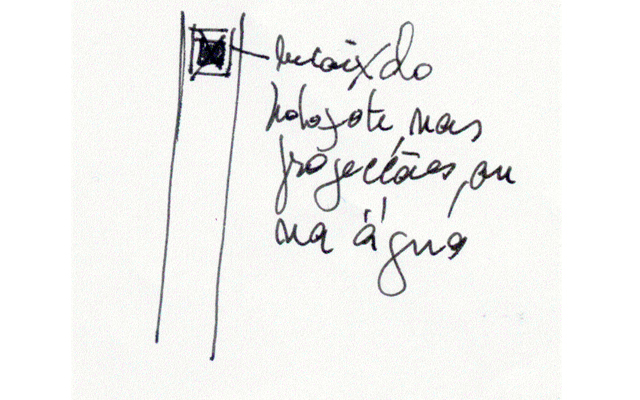 do
holofote, nas
projecções, ou
na água